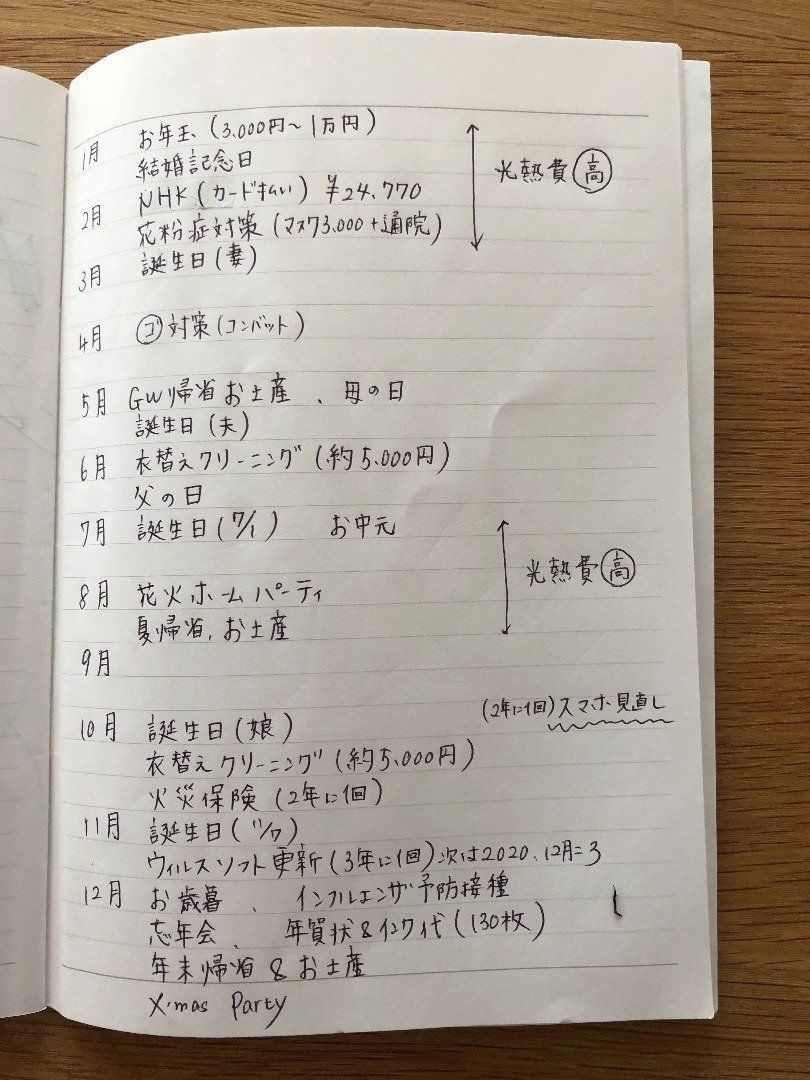 1月 お年玉 (3,000円～1万円)
結婚記念日
光熱費 高
2月 NHK (カード払い) ¥24,770
花粉症対策 (マスク3,000+通院)
3月 誕生日 (妻)
4月 ゴ対策 (コンバット)
5月 GW帰省お土産、母の日
誕生日 (夫)
6月 衣替えクリーニング (約5,000円)
父の日
7月 誕生日 (7/1) お中元
光熱費 高
8月 花火ホームパーティ
夏帰省、お土産
9月
10月 誕生日 (娘)
(2年に1回) スマホ見直し
衣替えクリーニング (約5,000円)
火災保険 (2年に1回)
11月 誕生日 (11/7)
ウィルスソフト更新 (3年に1回) 次は2020.12月=3
12月 お歳暮、インフルエンザ予防接種
忘年会、年賀状&インク代 (130枚)
年末帰省&お土産
X'mas Party